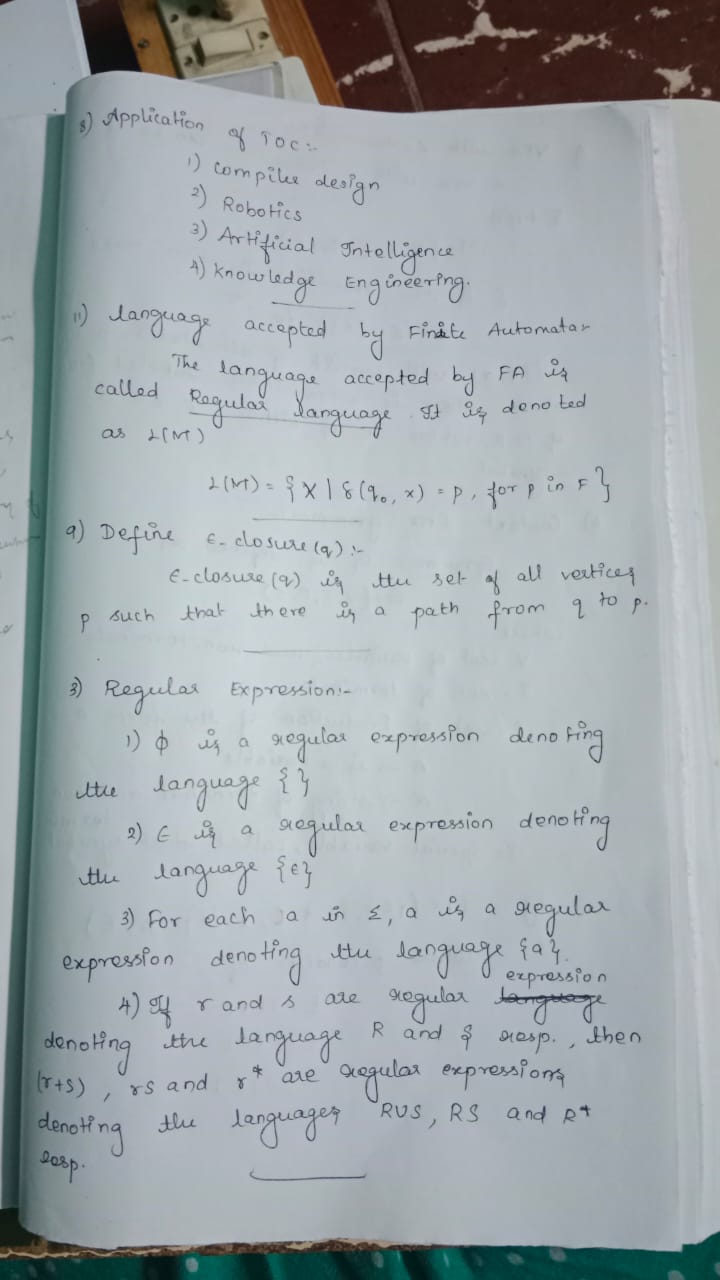 8) Application of TOC:-
1) compiler design
2) Robotics
3) Artificial Intelligence
4) Knowledge Engineering.
11) Language accepted by Finite Automata:-
The language accepted by FA is
called Regular language. It is denoted
as L(M)
L(M) = { X | δ(q₀, x) = p, for p in F }
9) Define ε-closure(q):-
ε-closure(q) is the set of all vertices
p such that there is a path from q to p.
3) Regular Expression:-
1) ϕ is a regular expression denoting
the language { }
2) ε is a regular expression denoting
the language {ε}
3) For each a in Σ, a is a regular
expression denoting the language {a}.
4) If r and s are regular expression
denoting the language R and S resp., then
(r+s), rs and r* are regular expressions
denoting the languages RUS, RS and R*
resp.